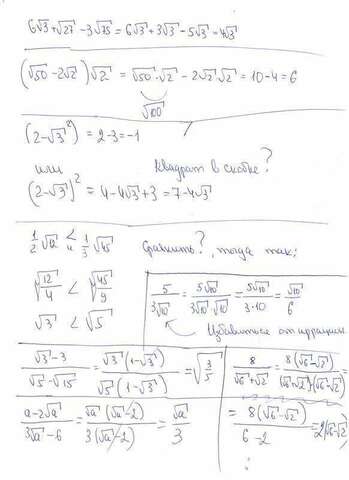 6√3+√27-3√75=6√3+3√3-5√3=4√3
(√50-2√2)√2=√50·√2-2√2√2=10-4=6
√100
(2-√3²)=2-3=-1
или Квадрат в скобке?
(2-√3)²=4-4√3+3=7-4√3
1/2√12 < и 1/3√45 Сравнить?, тогда так:
√12/4 < √45/9
√3 < √5
5/3√10=5√10/3√10·√10=5√10/3·10=√10/6
Избавиться от иррацион.
√3-3/√5-√15=√3(1-√3)/√5(1-√3)=√3/5
a-2√a/3√a-6=√a(√a-2)/3(√a-2)=√a/3
8/√6+√2=8(√6-√2)/(√6+√2)(√6-√2)=
=8(√6-√2)/6-2=2(√6-√2)